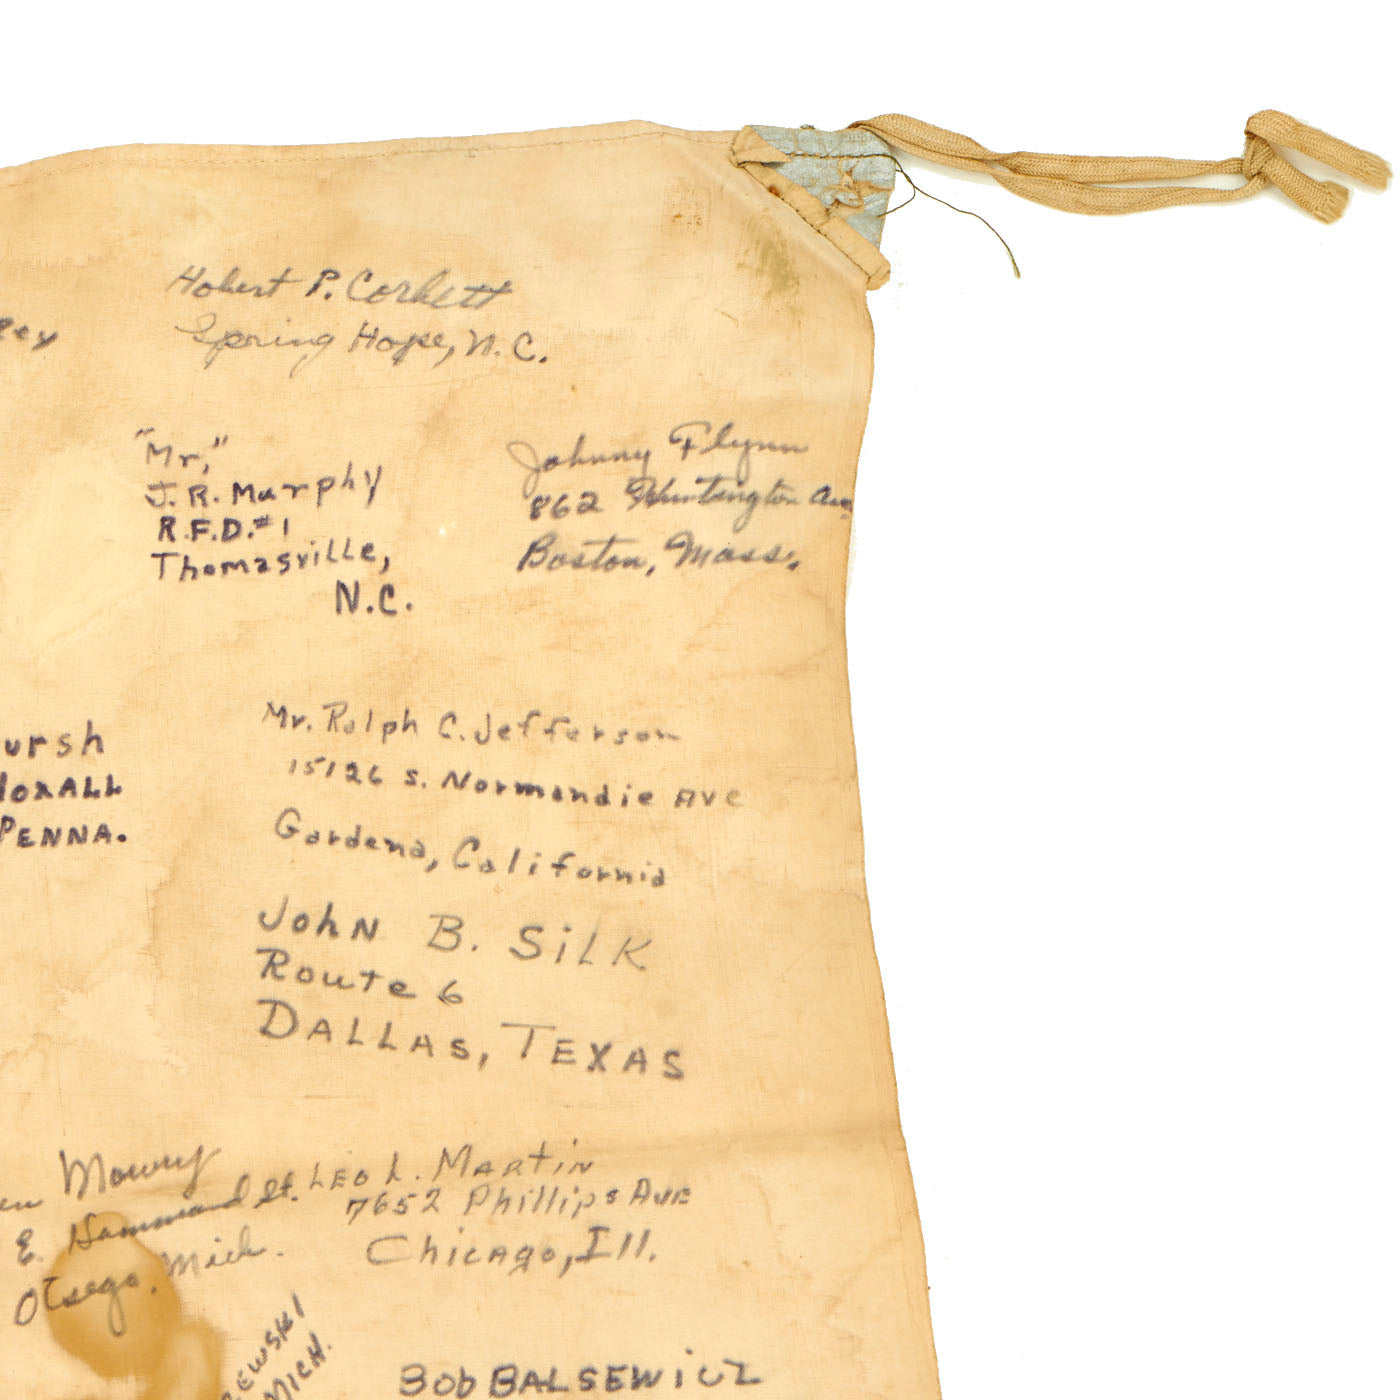 Hobert P. Corbett
Spring Hope, N.C.
"Mr,"
J. R. Murphy
R.F.D. #1
Thomasville,
N.C.
Johnny Flynn
862 Huntington Ave
Boston, Mass.
ursh
PENNA.
Mr. Ralph C. Jefferson
15126 S. Normandie Ave
Gardena, California
John B. Silk
Route 6
DALLAS, TEXAS
Mowry
E. Hammond St.
Otsego, Mich.
LEO L. MARTIN
7652 Phillips Ave
Chicago, Ill.
EWSKI
MICH.
BOB BALSEWICZ